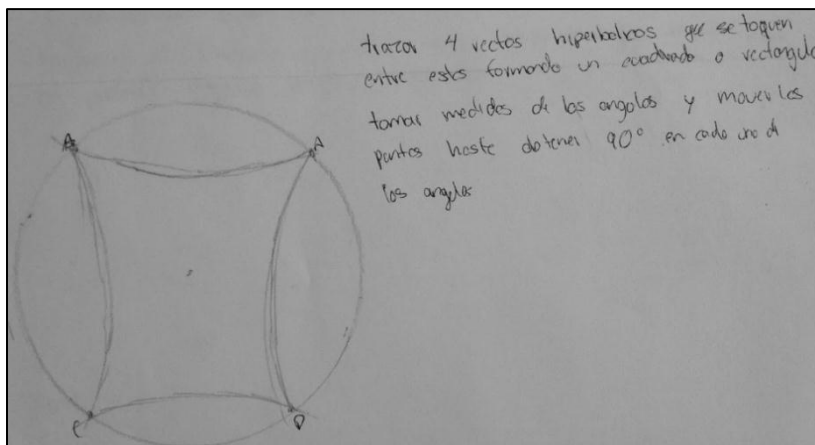 trazar 4 rectos hiperbolicos que se toquen
entre estos formando un cuadrado o rectangulo
tomar medidas de los angulos y mover los
puntos hasta obtener 90° en cada uno de
los angulos
A
A
C
D